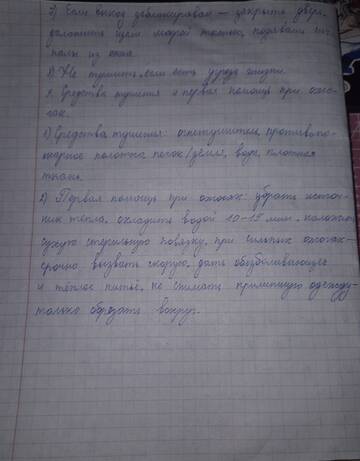 3) Если выход заблокирован – закрыть дверь,
заложить щели мокрой тканью, подавать сиг-
налы из окна
4) Не тушить, если есть угроза жизни.
4. Средства тушения и первая помощь при ожо-
гах.
1) Средства тушения: огнетушитель, противопо-
жарное полотно песок/земля, вода, плотная
ткань.
2) Первая помощь при ожогах: убрать источ-
ник тепла, охладить водой 10-15 мин, наложить
сухую стерильную повязку, при сильных ожогах-
срочно вызвать скорую, дать обезболивающее
и тёплое питьё, не снимать прилипшую одежду-
только обрезать вокруг.